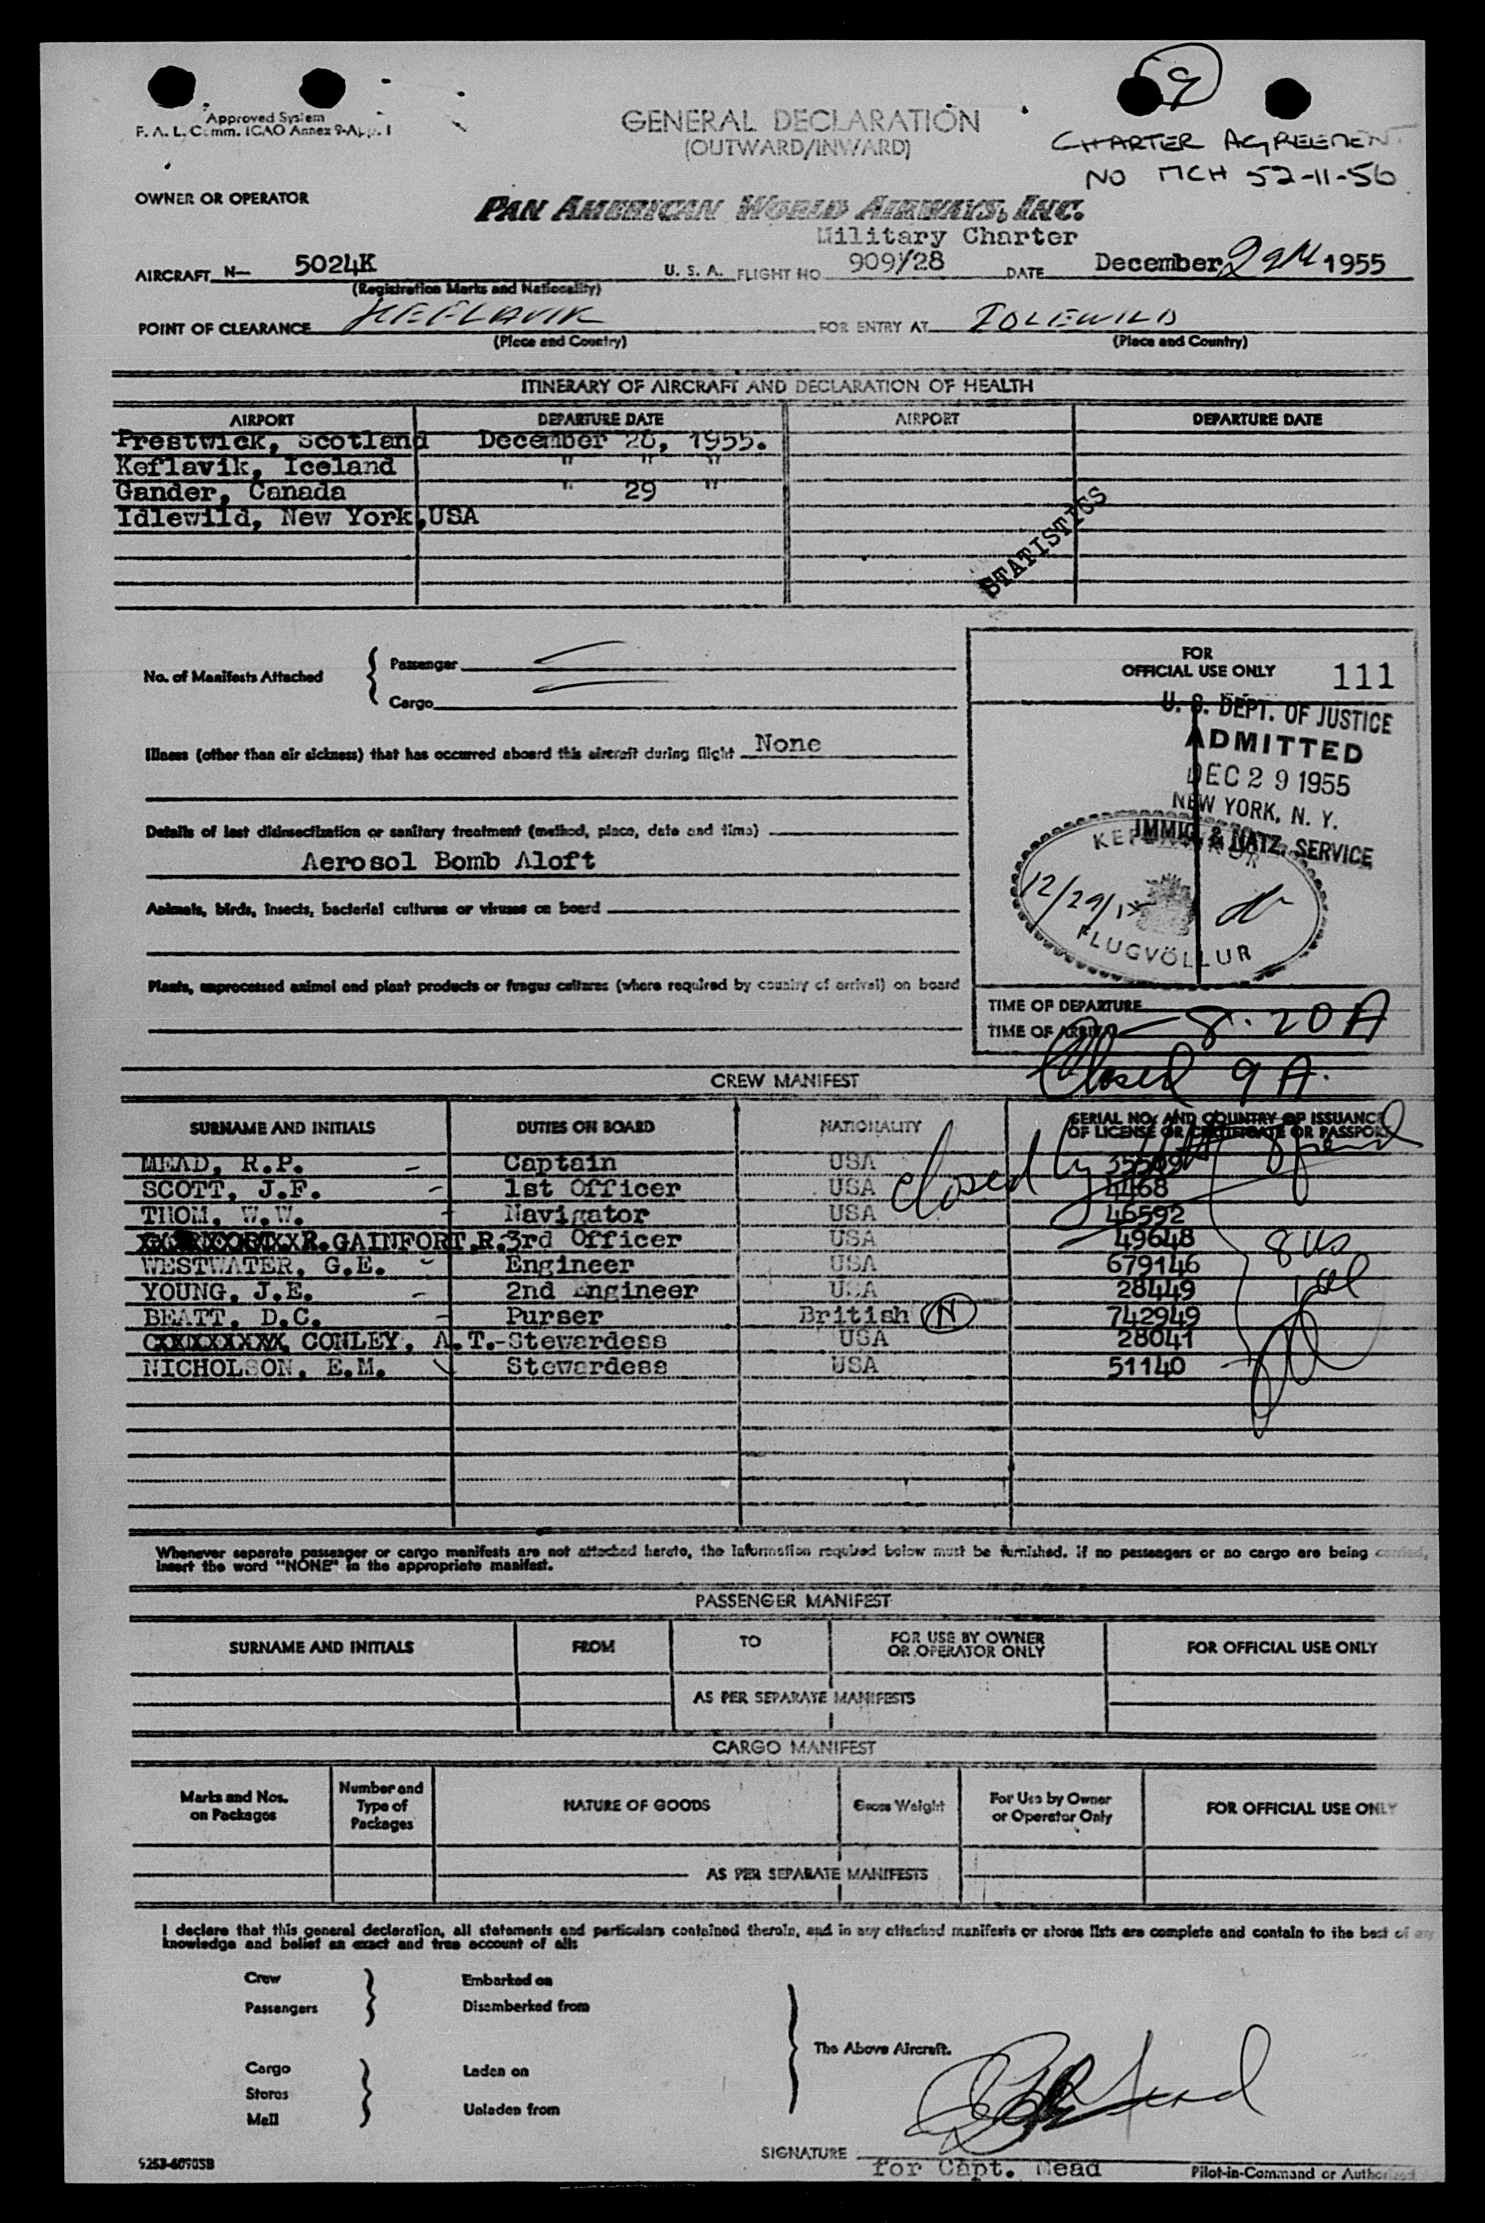 9
Approved System
F. A. L. Comm. ICAO Annex 9-App. 1
GENERAL DECLARATION
(OUTWARD/INWARD)
CHARTER AGREEMENT
NO MCH 52-11-56
OWNER OR OPERATOR
PAN AMERICAN WORLD AIRWAYS, INC.
Military Charter
AIRCRAFT N— 5024K U. S. A. FLIGHT NO 909/28 DATE December 29th 1955
(Registration Marks and Nationality)
POINT OF CLEARANCE KEFLAVIK FOR ENTRY AT IDLEWILD
(Place and Country) (Place and Country)
ITINERARY OF AIRCRAFT AND DECLARATION OF HEALTH
AIRPORT DEPARTURE DATE AIRPORT DEPARTURE DATE
Prestwick, Scotland December 28, 1955.
Keflavik, Iceland " " "
Gander, Canada " 29 "
Idlewild, New York,USA
STATISTICS
No. of Manifests Attached
Passenger
Cargo
FOR
OFFICIAL USE ONLY 111
U. S. DEPT. OF JUSTICE
ADMITTED
DEC 29 1955
NEW YORK, N. Y.
IMMIG. & NATZ. SERVICE
Illness (other than air sickness) that has occurred aboard this aircraft during flight None
Details of last disinsectization or sanitary treatment (method, place, date and time)
Aerosol Bomb Aloft
12/29/
FLUGVÖLLUR
Animals, birds, insects, bacterial cultures or viruses on board
Plants, unprocessed animal and plant products or fungus cultures (where required by country of arrival) on board
TIME OF DEPARTURE
TIME OF ARRIVAL — 8:20 A
Closed 9 A.
CREW MANIFEST
SURNAME AND INITIALS DUTIES ON BOARD NATIONALITY SERIAL NO. AND COUNTRY OF ISSUANCE
OF LICENSE OR CERTIFICATE OR PASSPORT
Closed by
MEAD, R.P. Captain USA
SCOTT, J.F. 1st Officer USA 4468
THOM, W.W. Navigator USA 46592
R.GAINFORT,R. 3rd Officer USA 49648
WESTWATER, G.E. Engineer USA 679146
YOUNG, J.E. 2nd Engineer USA 28449
BEATT, D.C. Purser British N 742949
CONLEY, A.T.- Stewardess USA 28041
NICHOLSON, E.M. Stewardess USA 51140
8 us
Whenever separate passenger or cargo manifests are not attached hereto, the information required below must be furnished. If no passengers or no cargo are being carried,
insert the word "NONE" in the appropriate manifest.
PASSENGER MANIFEST
SURNAME AND INITIALS FROM TO FOR USE BY OWNER
OR OPERATOR ONLY FOR OFFICIAL USE ONLY
AS PER SEPARATE MANIFESTS
CARGO MANIFEST
Marks and Nos.
on Packages
Number and
Type of
Packages
NATURE OF GOODS
Gross Weight
For Use by Owner
or Operator Only
FOR OFFICIAL USE ONLY
AS PER SEPARATE MANIFESTS
I declare that this general declaration, all statements and particulars contained therein, and in any attached manifests or stores lists are complete and contain to the best of my
knowledge and belief an exact and true account of all:
Crew Embarked on
Passengers Disembarked from
The Above Aircraft.
Cargo Laden on
Stores
Mail Unladen from
Mead
SIGNATURE
for Capt. Mead Pilot-in-Command or Authorized
9253-60905B